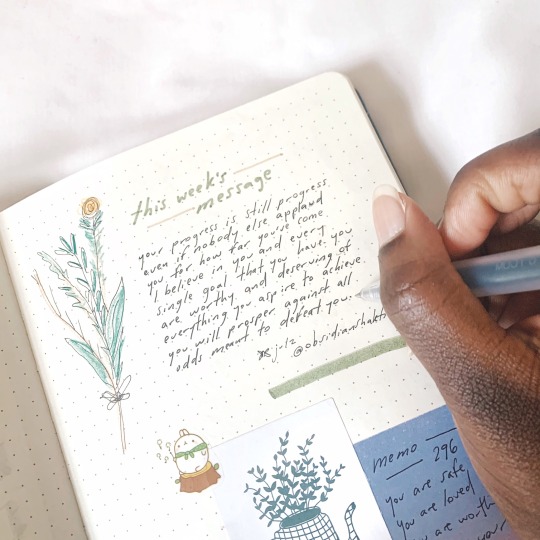 this week's
message
your progress is still progress
even if nobody else applaud
you for how far you've come.
I believe in you and every
single goal that you have. you
are worthy and deserving of
everything you aspire to achieve.
you will prosper against all
odds meant to defeat you.
julz @obsidianshakti
memo
296
you are safe,
you are loved
you are worth
your